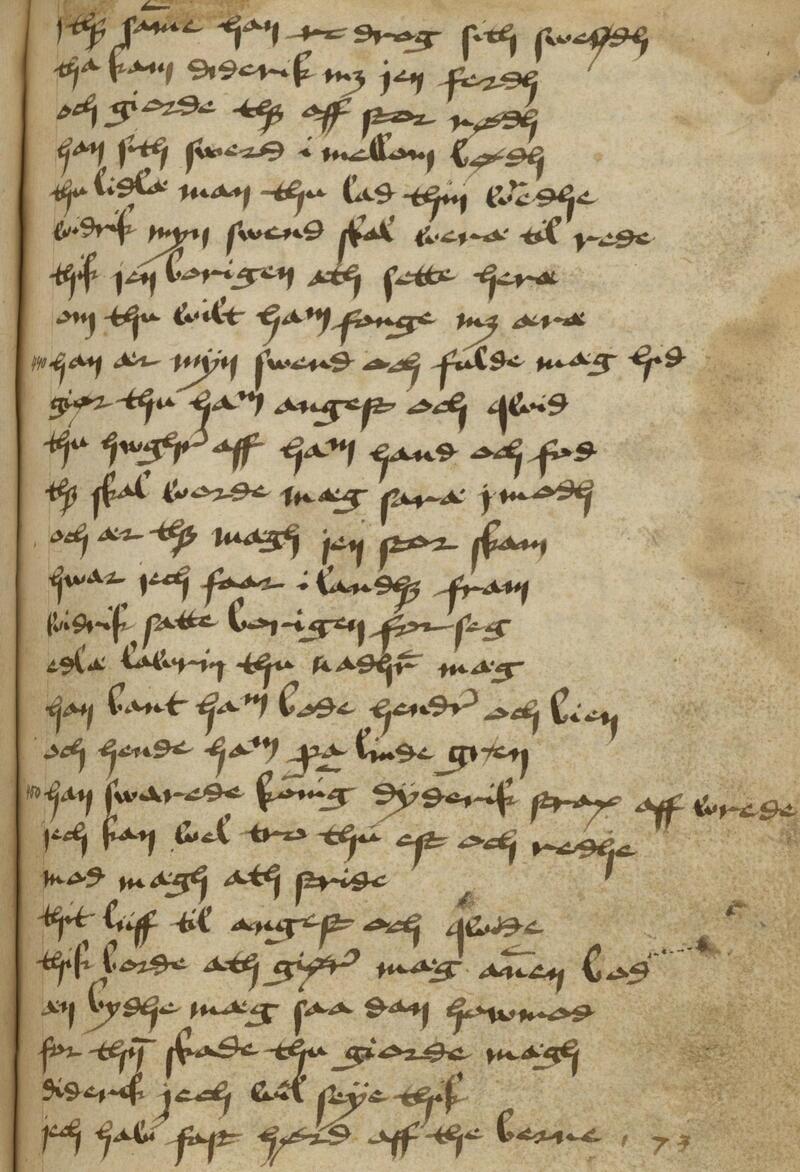 i thꝫ sāme han re drog sith swerdh
tha kam diderik mꝫ jen ferdh
och giorde thꝫ aff stor nødh
han sith swerd i mellom bødh
thu lidlæ man thu lad thin wredhe
widrik myn swend skal weræ til rede
thik jen borigen ath sette heræ
om thu wilt ham fonge mꝫ æræ
440 han ær mÿn swend och fulde mæg hid
giør thu ham angest och qwid
thu hwghr̛ aff ham hand och fod
thꝫ skal worde mæg saræ j modh
och ær thꝫ mægh jen stor skam
hwar jech faar i landhꝫ fram
widrik satte borigen for seg
edlæ lawrin thu nadhr̄ mæg
han bant ham bode hendr̛ och bien
och hende ham pa linde gren
450 han swarede kōnīg dÿderik strax aff wrede
jech kan wel tro thu est och redhe
mod mægh ath stride
thit liiff til angest och qwide
thik borde ath giør̛ mæg an̄en bod
æn bydhe mæg saa dan howmod
for thn̄ skade thu giorde mægh
diderik jech wil seÿe thik
jech haw̄ fast hørd aff the berne
73